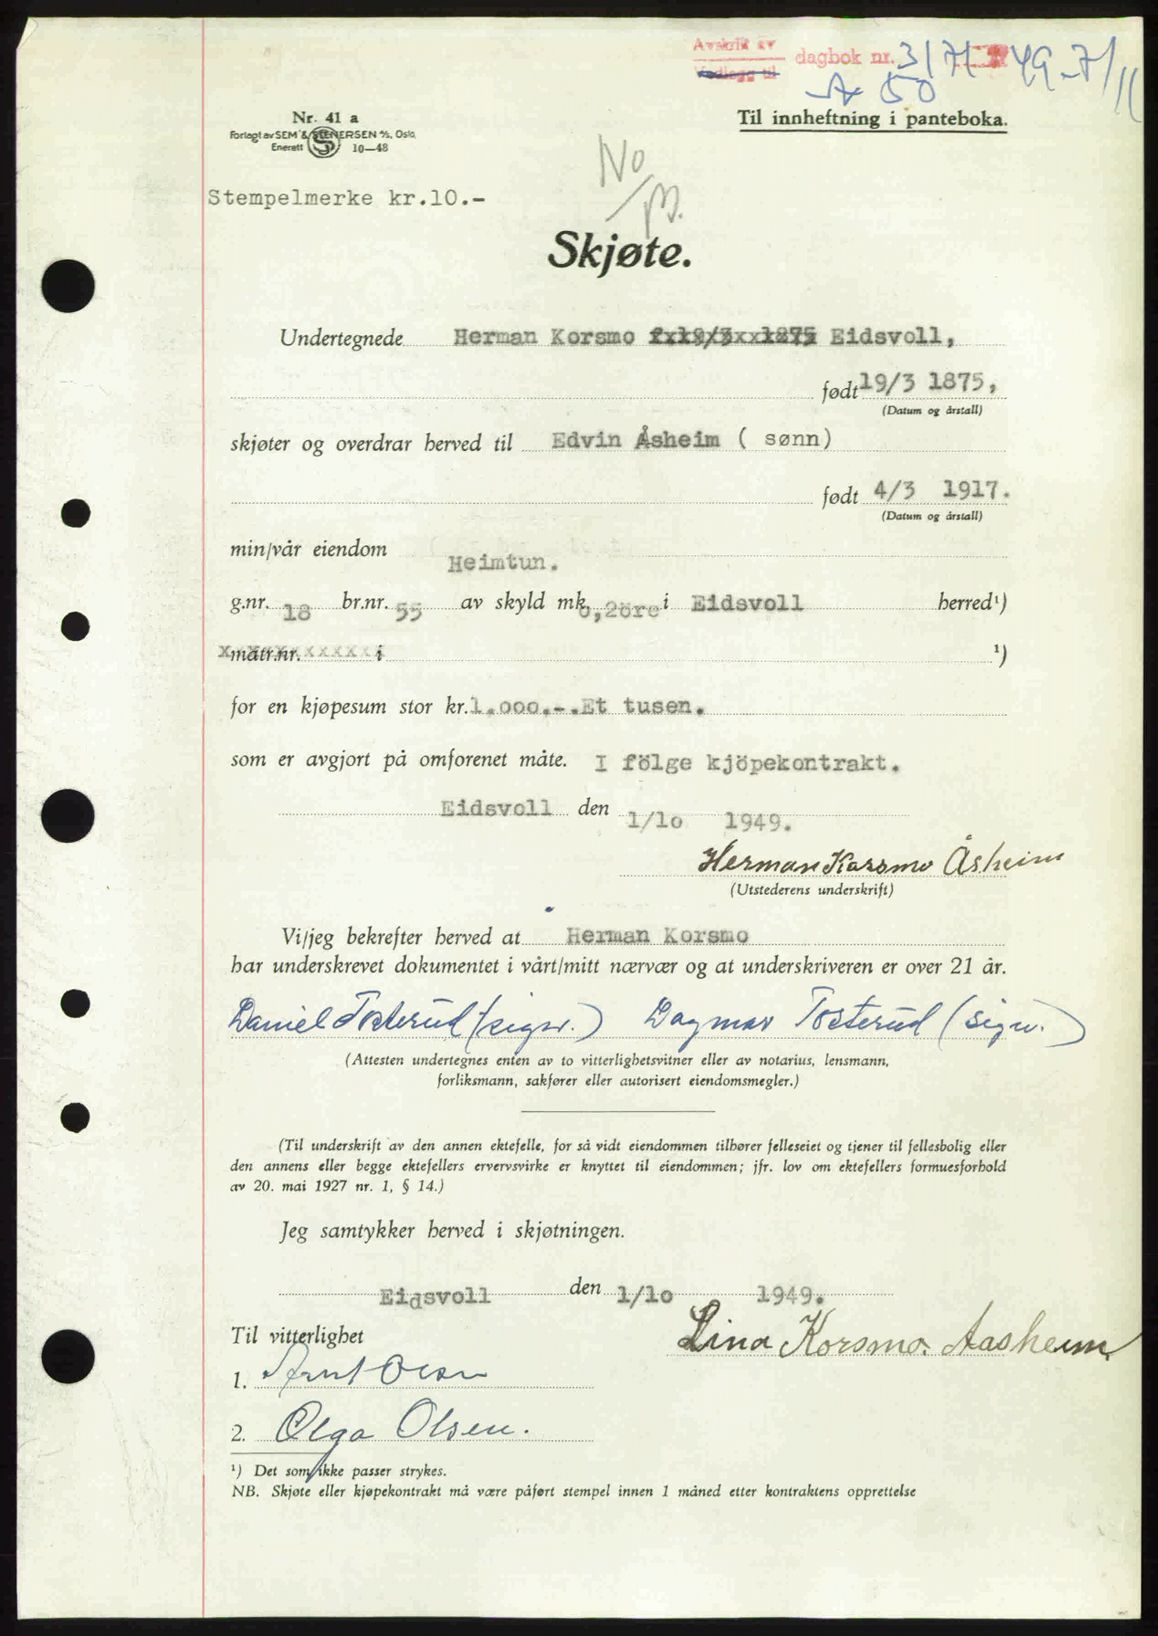 Avskrift av
Vedlegg til
dagbok nr. 3171 49 - 7/11
A 50
Nr. 41 a
Til innheftning i panteboka.
Forlagt av SEM & STENERSEN A/S, Oslo.
Enerett 10—48
No
Stempelmerke kr.10.-
Skjøte.
Undertegnede Herman Korsmo f.19/3 1875 Eidsvoll,
født 19/3 1875,
(Datum og årstall)
skjøter og overdrar herved til Edvin Åsheim ( sønn)
født 4/3 1917.
(Datum og årstall)
min/vår eiendom Heimtun.
g.nr. 18 br.nr. 55 av skyld mk. 0,2öre i Eidsvoll herred¹)
matr.nr. i ¹)
for en kjøpesum stor kr. 1.000.-.Et tusen.
som er avgjort på omforenet måte. I fölge kjöpekontrakt.
Eidsvoll den 1/10 1949.
Herman Korsmo Åsheim
(Utstederens underskrift)
Vi/jeg bekrefter herved at Herman Korsmo
har underskrevet dokumentet i vårt/mitt nærvær og at underskriveren er over 21 år.
Daniel Tosterud (sign.) Dagmar Tosterud (sign.)
(Attesten undertegnes enten av to vitterlighetsvitner eller av notarius, lensmann,
forliksmann, sakfører eller autorisert eiendomsmegler.)
(Til underskrift av den annen ektefelle, for så vidt eiendommen tilhører felleseiet og tjener til fellesbolig eller
den annens eller begge ektefellers ervervsvirke er knyttet til eiendommen; jfr. lov om ektefellers formuesforhold
av 20. mai 1927 nr. 1, § 14.)
Jeg samtykker herved i skjøtningen.
Eidsvoll den 1/10 1949.
Til vitterlighet
Lina Korsmo. Aasheim
1. Arnt Olsen
2. Olga Olsen.
¹) Det som ikke passer strykes.
NB. Skjøte eller kjøpekontrakt må være påført stempel innen 1 måned etter kontraktens opprettelse